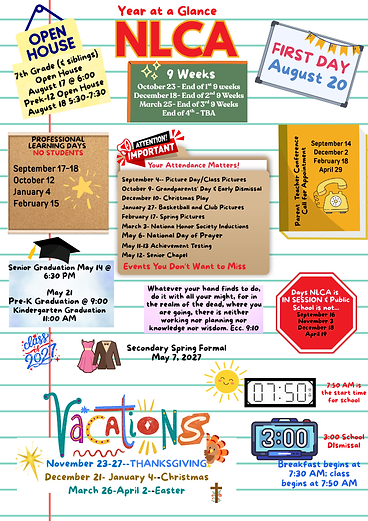 Year at a Glance
NLCA
OPEN
HOUSE
7th Grade (& siblings)
Open House
August 17 @ 6:00
Prek-12 Open House
August 18 5:30-7:30
9 Weeks
October 23 - End of 1st 9 weeks
December 18- End of 2nd 9 Weeks
March 25- End of 3rd 9 Weeks
End of 4th - TBA
FIRST DAY
August 20
PROFESSIONAL
LEARNING DAYS
NO STUDENTS
September 17-18
October 12
January 4
February 15
ATTENTION!
IMPORTANT
Your Attendance Matters!
September 4-- Picture Day/Class Pictures
October 9- Grandparents' Day & Early Dismissal
December 10- Christmas Play
January 27- Basketball and Club Pictures
February 17- Spring Pictures
March 2- National Honor Society Inductions
May 6- National Day of Prayer
May 11-13 Achievement Testing
May 12- Senior Chapel
Events You Don't Want to Miss
Parent Teacher Conference
Call for Appointment
September 14
December 2
February 18
April 29
Senior Graduation May 14 @
6:30 PM
May 21
Pre-K Graduation @ 9:00
Kindergarten Graduation
11:00 AM
Whatever your hand finds to do,
do it with all your might, for in
the realm of the dead, where you
are going, there is neither
working nor planning nor
knowledge nor wisdom. Ecc. 9:10
Days NLCA is
IN SESSION & Public
School is not...
September 16
November 3
December 18
April 19
class of
2027
Secondary Spring Formal
May 7, 2027
07:50
7:50 AM is
the start time
for school
VACATIONS
3:00
3:00 School
Dismissal
November 23-27--THANKSGIVING
December 21- January 4--Christmas
March 26-April 2--Easter
Breakfast begins at
7:30 AM; class
begins at 7:50 AM